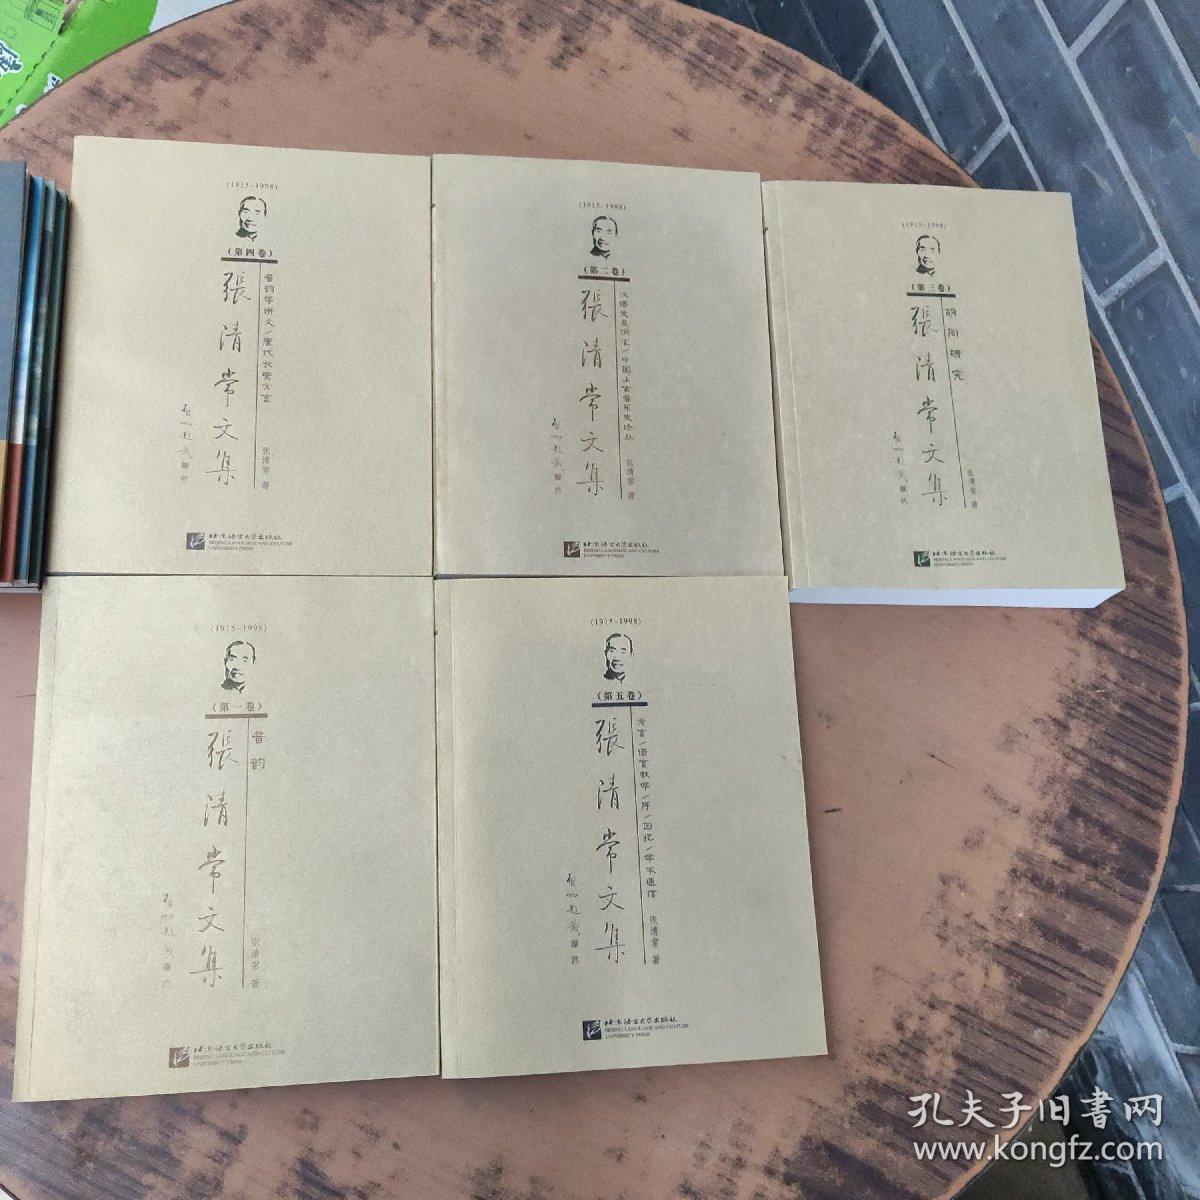 (1915-1998)
(第四卷)
張清常文集
音韵学讲义/唐代长安方言
张清常 著
启功题签
北京语言大学出版社
BEIJING LANGUAGE AND CULTURE
UNIVERSITY PRESS
(1915-1998)
(第二卷)
張清常文集
汉语史及词汇/中国上古音乐史论丛
张清常 著
启功题签
北京语言大学出版社
BEIJING LANGUAGE AND CULTURE
UNIVERSITY PRESS
(1915-1998)
(第三卷)
張清常文集
胡同研究
张清常 著
启功题签
北京语言大学出版社
BEIJING LANGUAGE AND CULTURE
UNIVERSITY PRESS
(1915-1998)
(第一卷)
張清常文集
音韵
张清常 著
启功题签
北京语言大学出版社
BEIJING LANGUAGE AND CULTURE
UNIVERSITY PRESS
(1915-1998)
(第五卷)
張清常文集
方言/语言教学/序/回忆/学术通信
张清常 著
启功题签
北京语言大学出版社
BEIJING LANGUAGE AND CULTURE
UNIVERSITY PRESS
孔夫子旧書网
www.kongfz.com